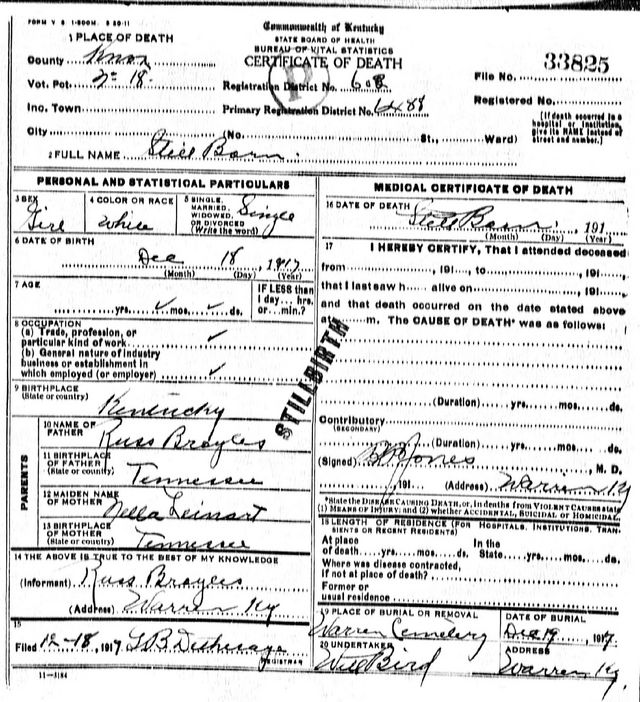 FORM V S 1-500M. 8 20-11
Commonwealth of Kentucky
STATE BOARD OF HEALTH
BUREAU OF VITAL STATISTICS
CERTIFICATE OF DEATH
1 PLACE OF DEATH
County Knox
Vot. Pct. 2=18.
Inc. Town
City
Registration District No. 608
Primary Registration District No. 6484
File No. 33825
Registered No.
(No. St., Ward)
[If death occurred in a hospital or institution, give its NAME instead of street and number.]
2 FULL NAME Still Born.
PERSONAL AND STATISTICAL PARTICULARS
3 SEX Girl
4 COLOR OR RACE White
5 SINGLE, MARRIED, WIDOWED, OR DIVORCED (Write the word) Single
6 DATE OF BIRTH
Dec 18, 1917
(Month) (Day) (Year)
7 AGE
yrs. ✓ mos. ✓ ds.
IF LESS than 1 day... hrs. or... min.?
8 OCCUPATION
(a) Trade, profession, or particular kind of work ✓
(b) General nature of industry business or establishment in which employed (or employer) ✓
9 BIRTHPLACE
(State or country)
Kentucky
PARENTS
10 NAME OF FATHER Russ Broyles
11 BIRTHPLACE OF FATHER (State or country) Tennessee
12 MAIDEN NAME OF MOTHER Nella Leinart
13 BIRTHPLACE OF MOTHER (State or country) Tennessee
14 THE ABOVE IS TRUE TO THE BEST OF MY KNOWLEDGE
(Informant) Russ Broyles
(Address) Warren Ky
15
Filed 12-18, 1917
REGISTRAR
11-3184
STILLBIRTH
MEDICAL CERTIFICATE OF DEATH
16 DATE OF DEATH Still Born 191
(Month) (Day) (Year)
17 I HEREBY CERTIFY, That I attended deceased
from, 191..., to, 191...,
that I last saw h alive on, 191...,
and that death occurred on the date stated above
at m. The CAUSE OF DEATH* was as follows:
(Duration) yrs. mos. ds.
Contributory
(SECONDARY)
(Duration) yrs. mos. ds.
(Signed) Jones, M. D.
, 191 (Address) Warren Ky
*State the DISEASE CAUSING DEATH, or, in deaths from VIOLENT CAUSES state (1) MEANS OF INJURY; and (2) whether ACCIDENTAL, SUICIDAL or HOMICIDAL.
18 LENGTH OF RESIDENCE (FOR HOSPITALS, INSTITUTIONS, TRANSIENTS OR RECENT RESIDENTS)
At place of death yrs. mos. ds. In the State yrs. mos. ds.
Where was disease contracted, if not at place of death?
Former or usual residence
19 PLACE OF BURIAL OR REMOVAL Warren Cemetery
DATE OF BURIAL Dec 19, 1917
20 UNDERTAKER Will Bird
ADDRESS Warren Ky.